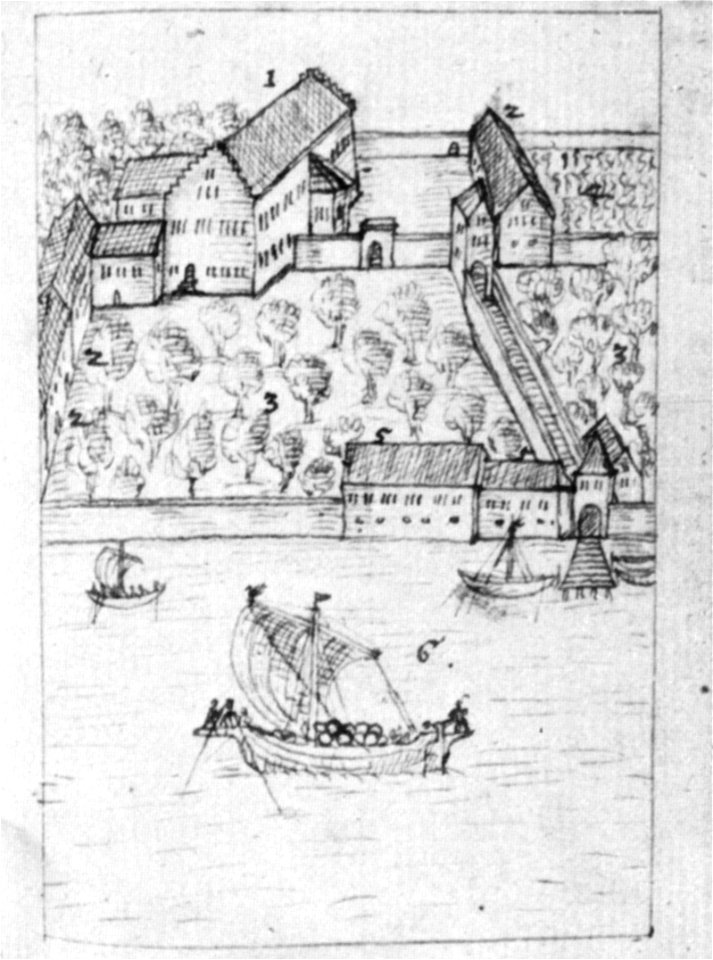 1
2
4
2
3
3
2
5
6.